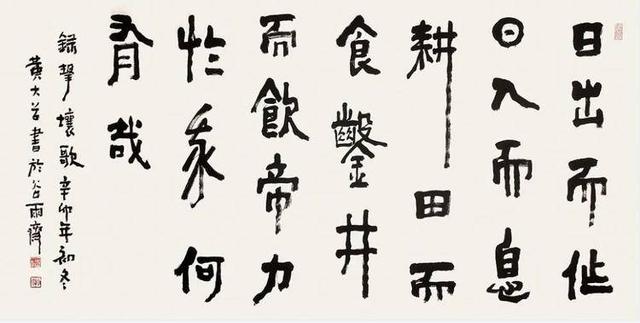 日出而作
日入而息
耕田而
食鑿井
而飲帝力
於我何
有哉
錄擊壤歌辛卯年初冬
黄大書於谷雨齋